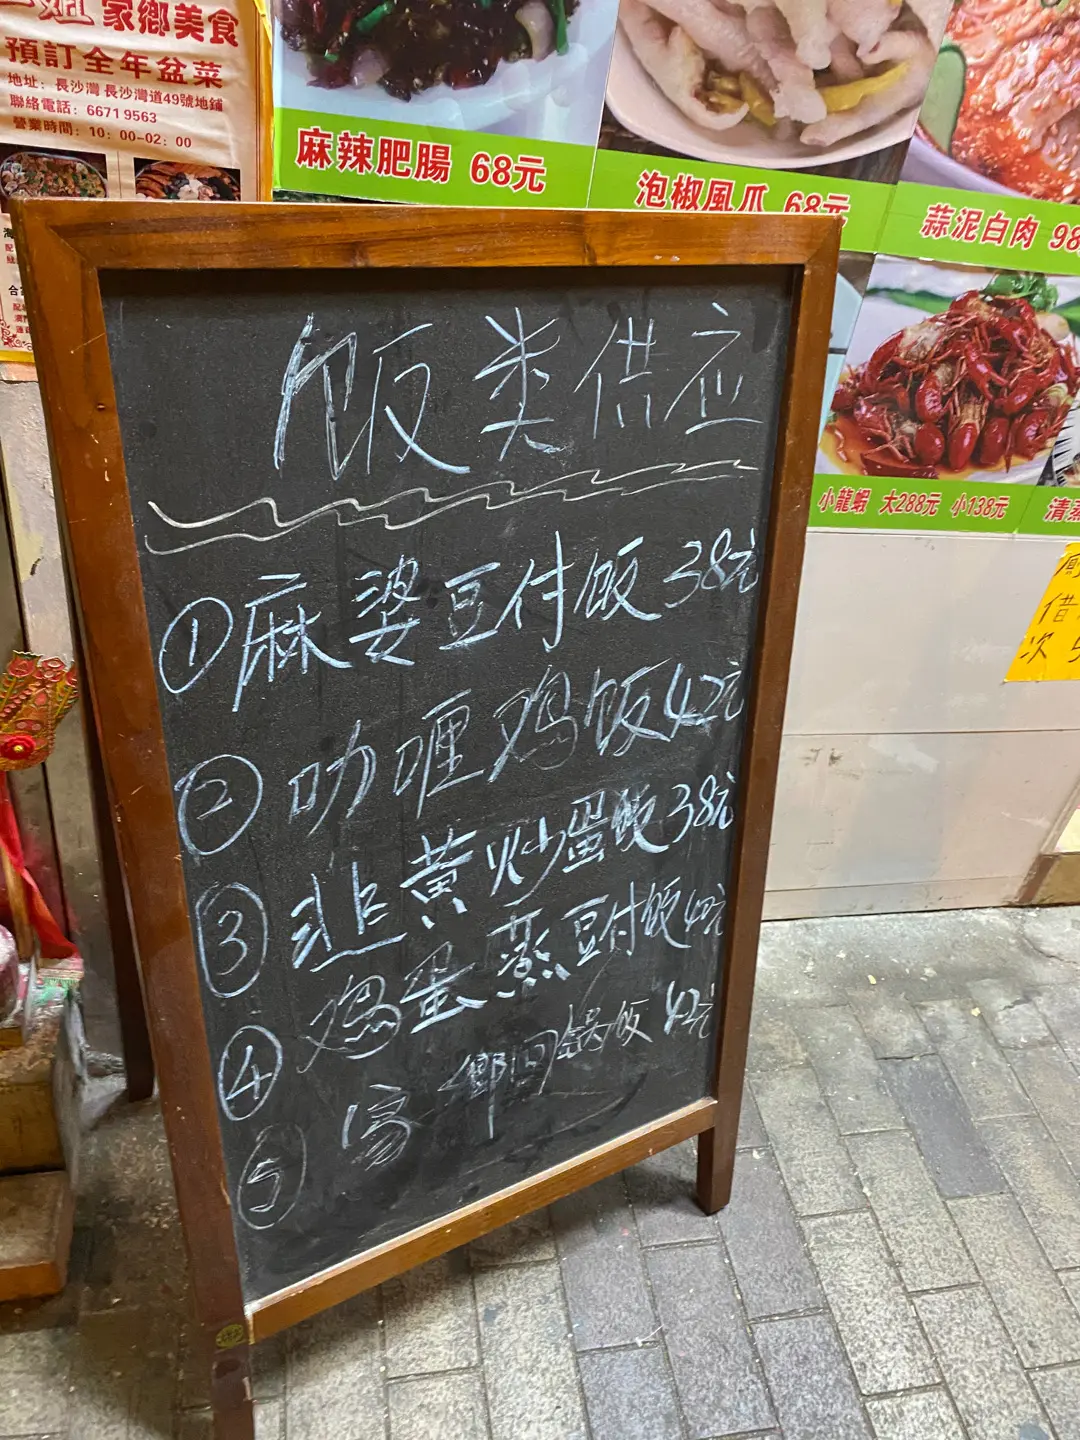 家鄉美食
預訂全年盆菜
地址：長沙灣 長沙灣道49號地鋪
聯絡電話：6671 9563
營業時間：10：00-02：00
麻辣肥腸 68元
泡椒風爪 68元
蒜泥白肉 98
小龍蝦 大288元 小138元
清蒸
借
次 5
饭类供应
① 麻婆豆付饭 38元
② 咖喱鸡饭 42元
③ 韭黄炒蛋饭 38元
④ 鸡蛋蒸豆付饭 40元
⑤ 家鄉回锅饭 42元